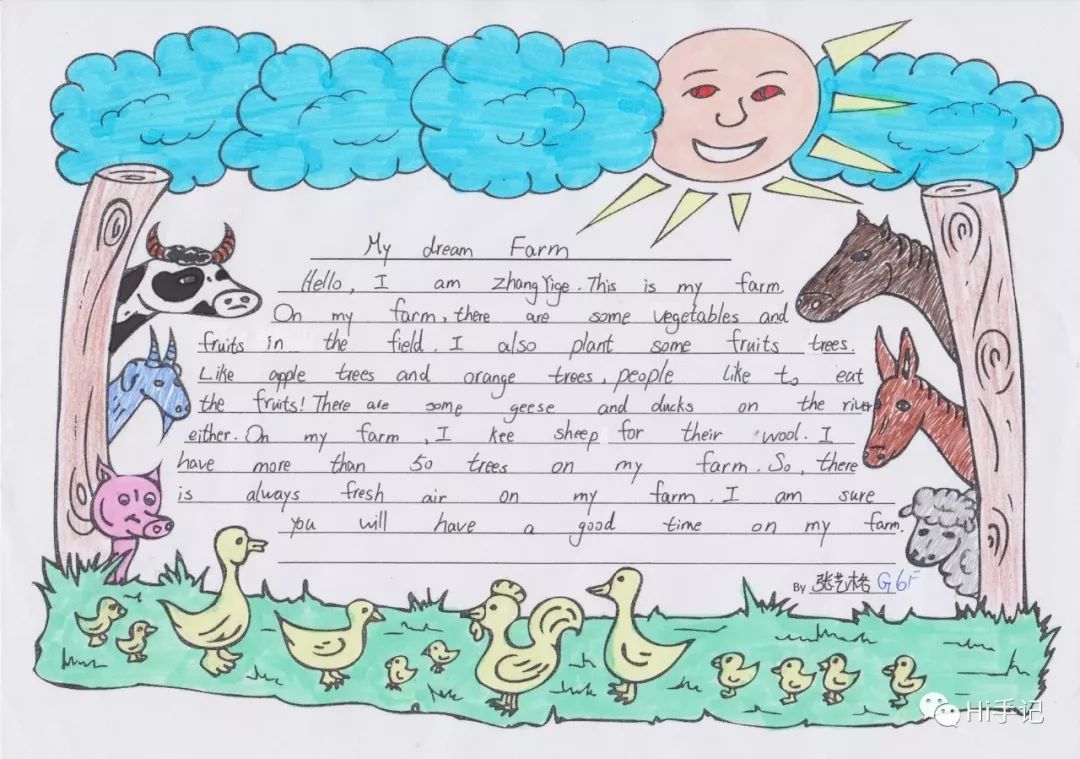 My dream Farm
Hello, I am Zhang Yige. This is my farm.
On my farm, there are some vegetables and
fruits in the field. I also plant some fruits trees.
Like apple trees and orange trees, people like to eat
the fruits! There are some geese and ducks on the river
either. On my farm, I kee sheep for their wool. I
have more than 50 trees on my farm. So, there
is always fresh air on my farm. I am sure
you will have a good time on my farm.
By 张艺格 G6F
Hi手记